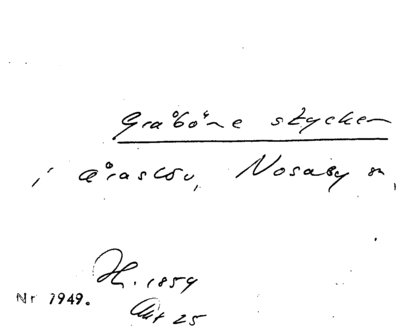 Gråbōne stycken
i Åraslöv, Nosaby sn,
H. 1859
Akt 25
Nr 1949.